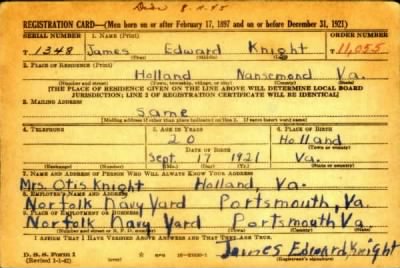 REGISTRATION CARD—(Men born on or after February 17, 1897 and on or before December 31, 1921)
SERIAL NUMBER 1. NAME (Print) ORDER NUMBER
T 1348 James Edward Knight T 11,055
(First) (Middle) (Last)
2. PLACE OF RESIDENCE (Print)
Holland Nansemond Va.
(Number and street) (Town, township, village, or city) (County) (State)
[THE PLACE OF RESIDENCE GIVEN ON THE LINE ABOVE WILL DETERMINE LOCAL BOARD
JURISDICTION; LINE 2 OF REGISTRATION CERTIFICATE WILL BE IDENTICAL]
3. MAILING ADDRESS
Same
[Mailing address if other than place indicated on line 2. If same insert word same]
4. TELEPHONE 5. AGE IN YEARS 6. PLACE OF BIRTH
20 Holland
DATE OF BIRTH (Town or county)
Sept. 17 1921 Va.
(Exchange) (Number) (Mo.) (Day) (Yr.) (State or country)
7. NAME AND ADDRESS OF PERSON WHO WILL ALWAYS KNOW YOUR ADDRESS
Mrs. Otis Knight Holland, Va.
8. EMPLOYER'S NAME AND ADDRESS
Norfolk Navy Yard Portsmouth, Va.
9. PLACE OF EMPLOYMENT OR BUSINESS
Norfolk Navy Yard Portsmouth Va.
(Number and street or R. F. D. number) (Town) (County) (State)
I AFFIRM THAT I HAVE VERIFIED ABOVE ANSWERS AND THAT THEY ARE TRUE.
D. S. S. Form 1
(Revised 1-1-42) (over) James Edward Knight
(Registrant's signature)